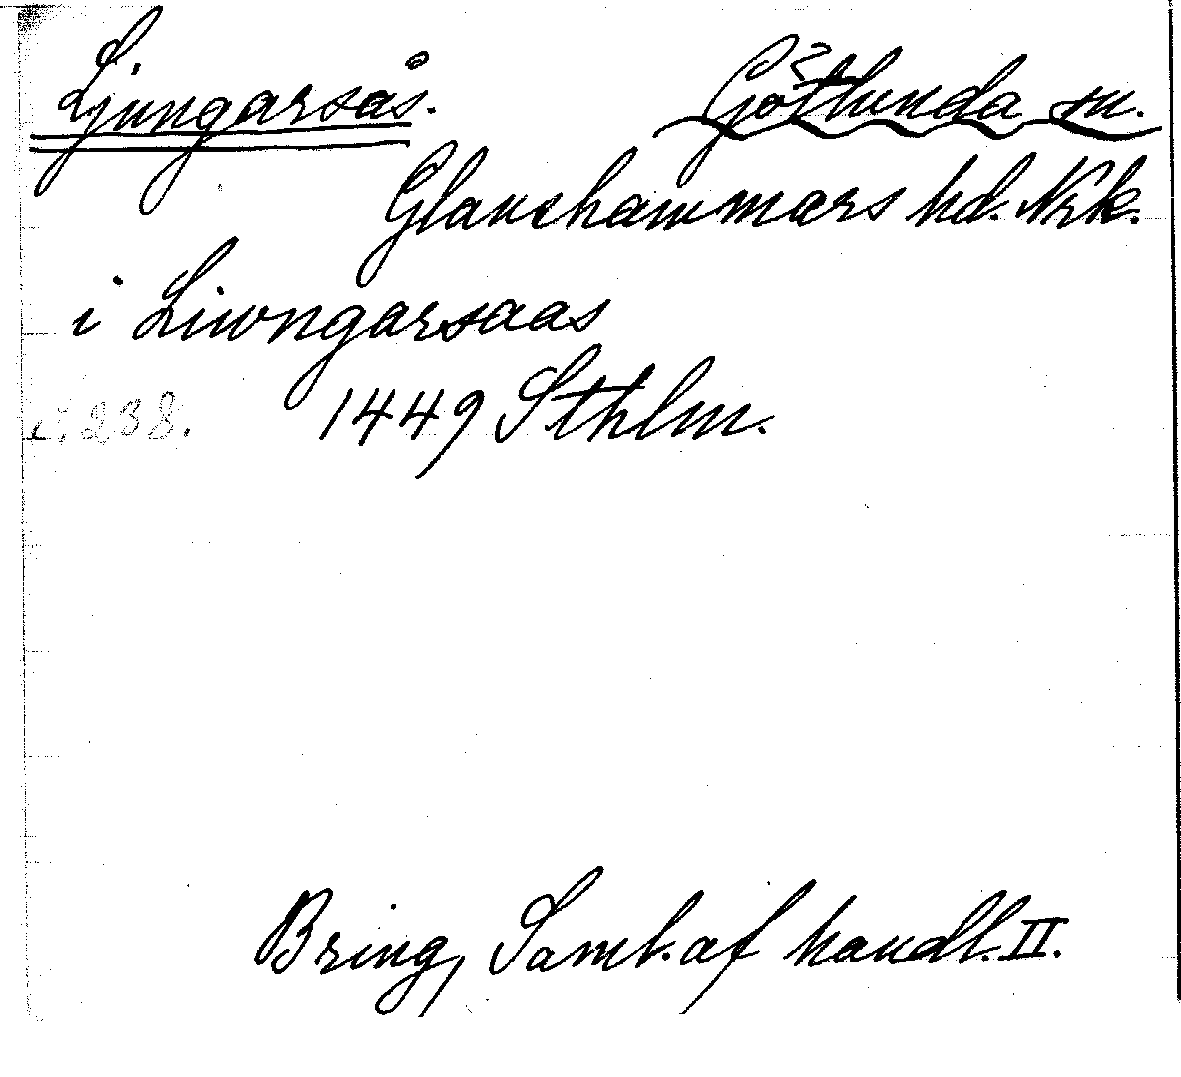 Ljungarsås. Götlunda sn.
Glanshammars hd. Nrk.
i Liwngarsaas
s. 238. 1449 Sthlm.
Bring, Saml. af handl. II.